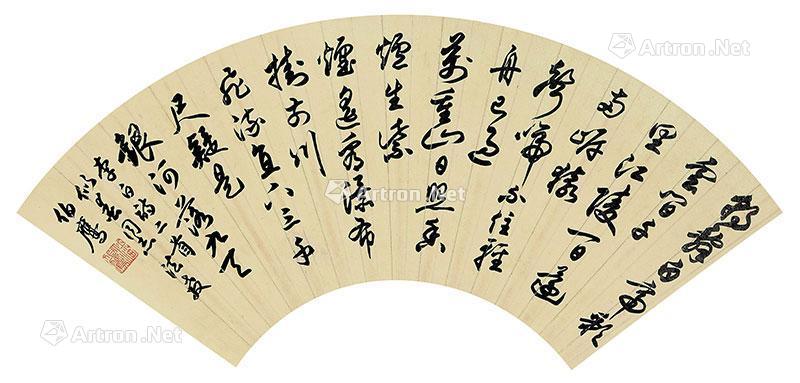 朝辭白帝彩
雲間千
里江陵一日還
兩岸猿
聲啼不住輕
舟已過
萬重山日照香
爐生紫
煙遙看瀑布
掛前川
飛流直下三千
尺疑是
銀河落九天
李白詩二首
同志法教
伯鷹
Artron.Net
Artron.Net
Artron.Net
Artron.Net
Artron.Net
Artron.Net